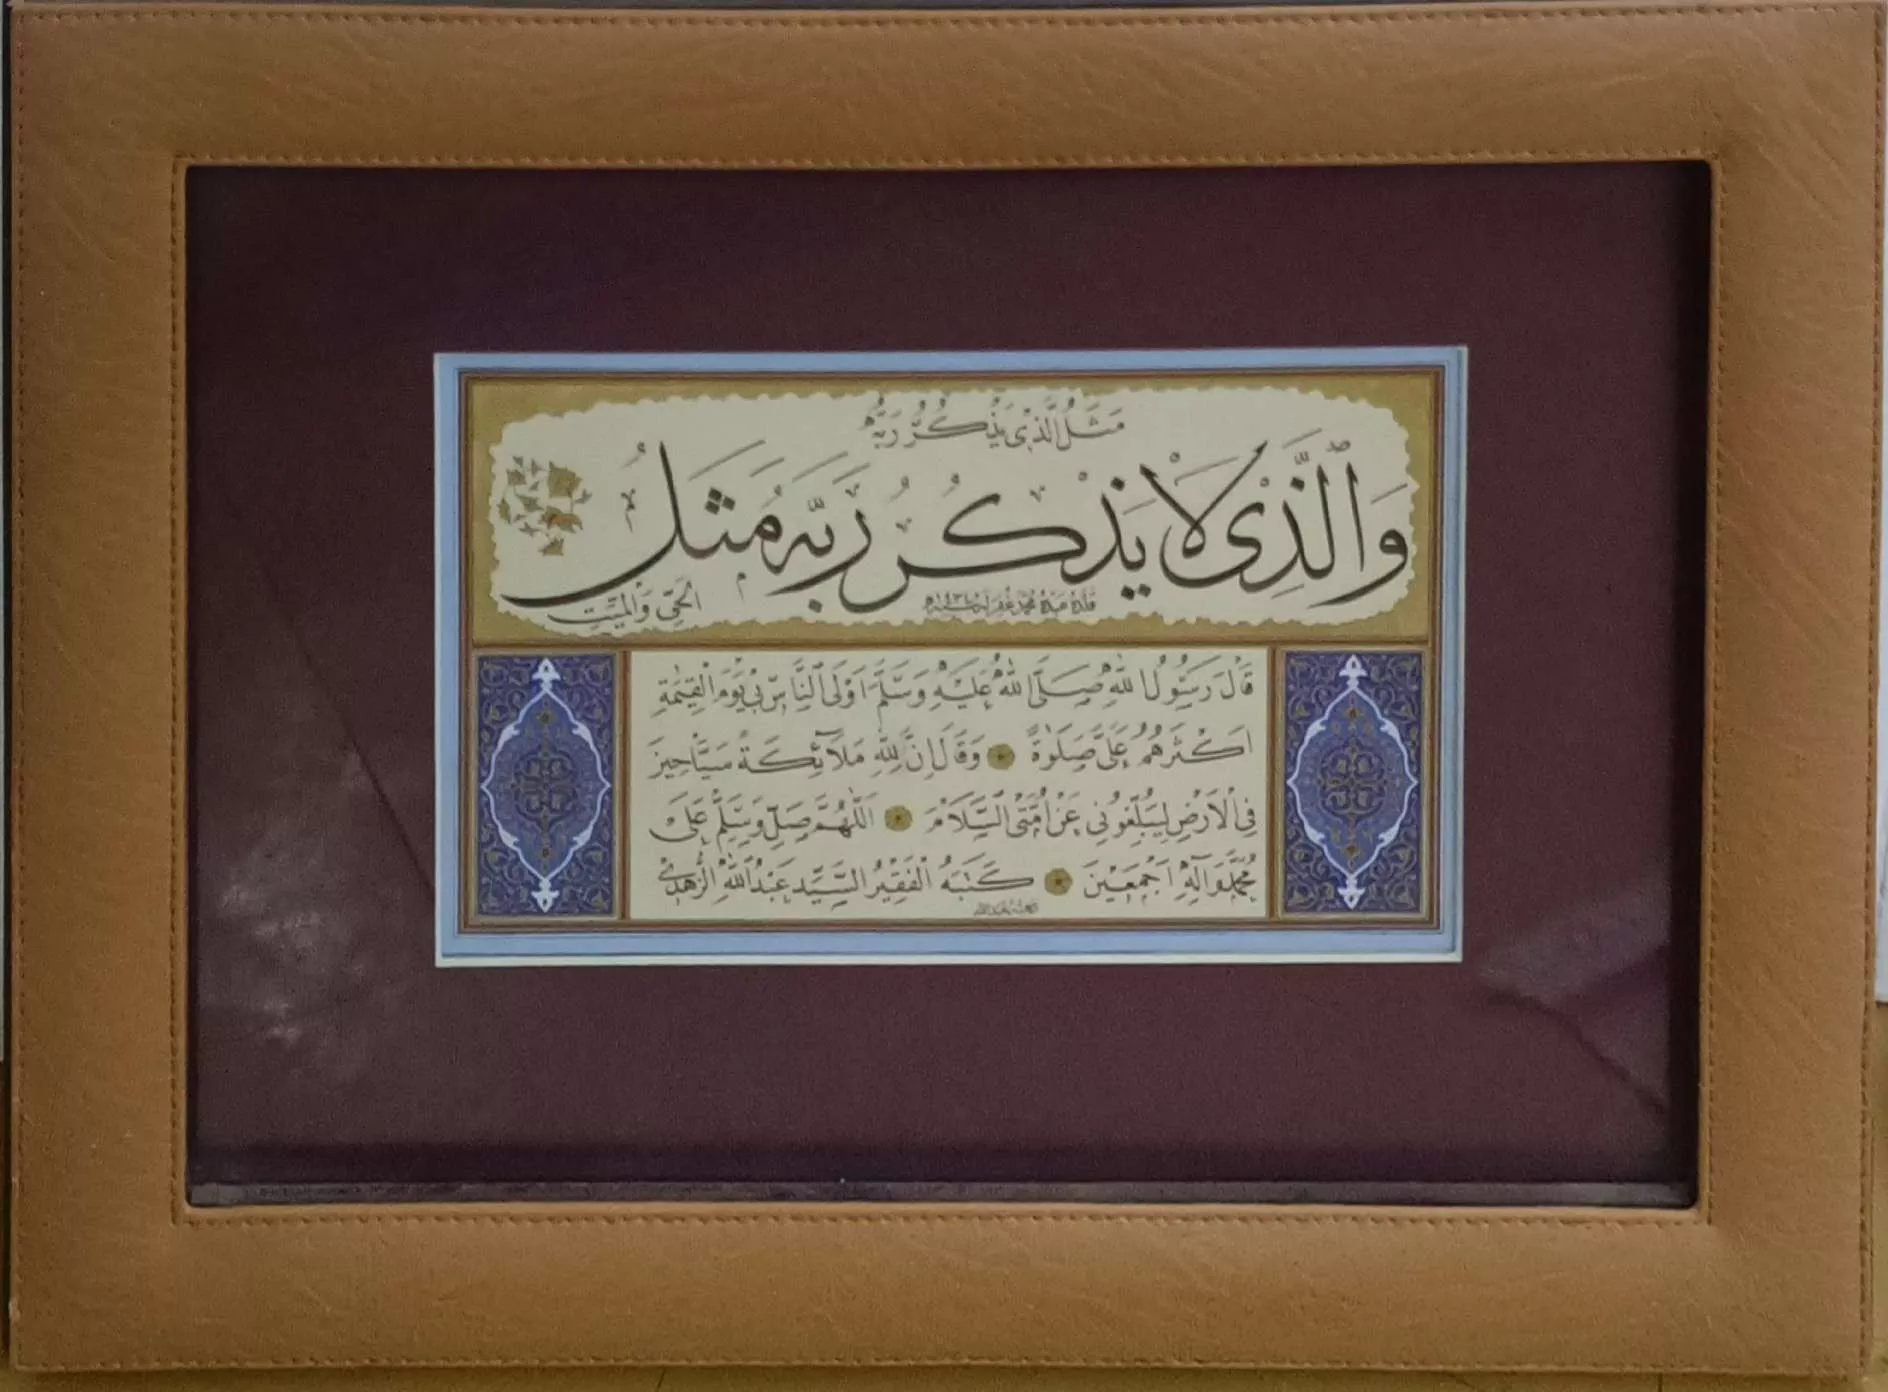 مَثَلُ الَّذِي يَذْكُرُ رَبَّهُ
وَالَّذِي لَا يَذْكُرُ رَبَّهُ مَثَلُ
الْحَيِّ وَالْمَيِّتِ
قَالَ رَسُولُ اللّٰهِ صَلَّى اللّٰهُ عَلَيْهِ وَسَلَّمَ اَوْلَى النَّاسِ بِي يَوْمَ الْقِيٰمَةِ
اَكْثَرُهُمْ عَلَيَّ صَلٰوةً وَقَالَ اِنَّ لِلّٰهِ مَلَآئِكَةً سَيَّاحِينَ
فِي الْاَرْضِ لِيُبَلِّغُونِي عَنْ اُمَّتِي السَّلَامَ اَللّٰهُمَّ صَلِّ وَسَلِّمْ عَلَى
مُحَمَّدٍ وَآلِهِ اَجْمَعِينَ كَتَبَهُ الْفَقِيرُ السَّيِّد عَبْدُ اللّٰهِ الزُّهْدِي